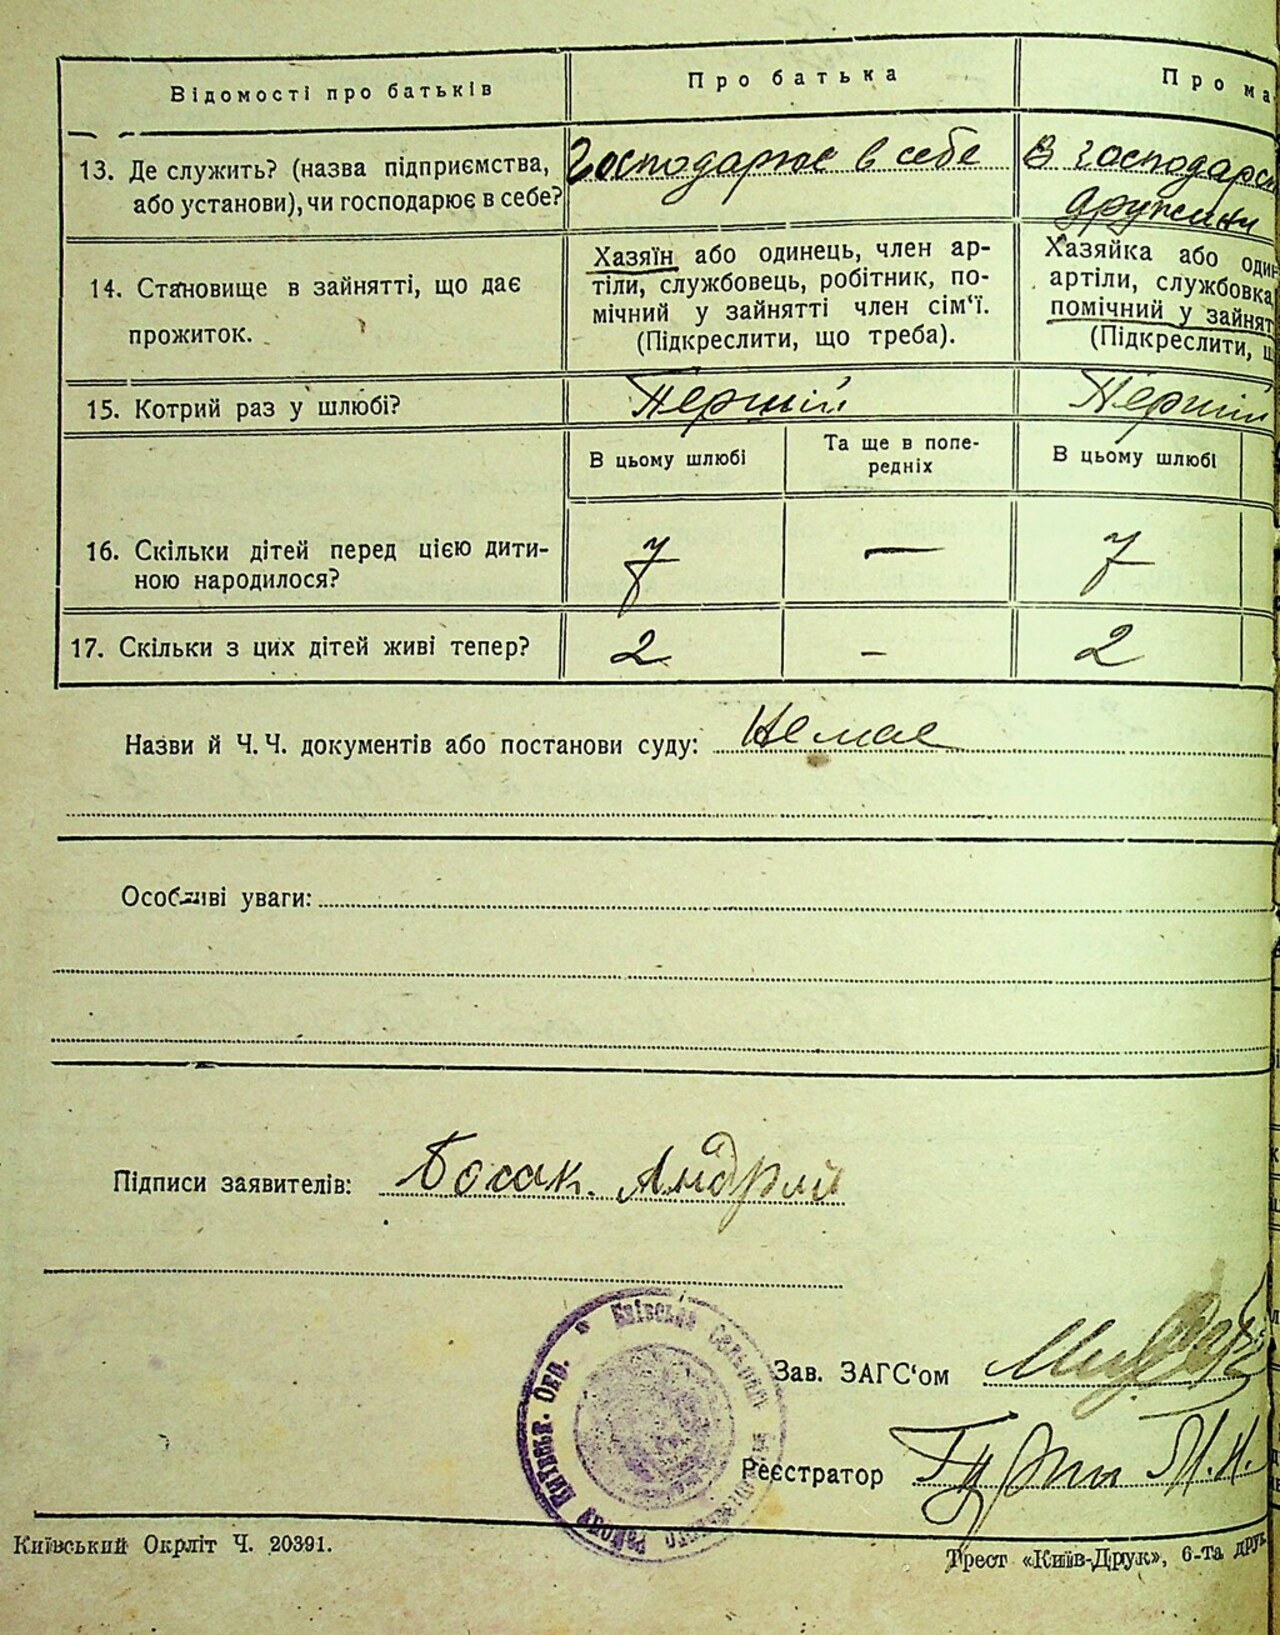 Відомості про батьків
Про батька
Про ма
13. Де служить? (назва підприємства,
або установи), чи господарює в себе?
Господарює в себе
В господарст
дружини
14. Становище в зайнятті, що дає
прожиток.
Хазяїн або одинець, член ар-
тіли, службовець, робітник, по-
мічний у зайнятті член сім‘ї.
(Підкреслити, що треба).
Хазяйка або один
артіли, службовка
помічний у зайнят
(Підкреслити, щ
15. Котрий раз у шлюбі?
Перший
Перший
В цьому шлюбі
Та ще в попе-
редніх
В цьому шлюбі
16. Скільки дітей перед цією дити-
ною народилося?
7
—
7
17. Скільки з цих дітей живі тепер?
2
–
2
Назви й Ч. Ч. документів або постанови суду: Немає
Особливі уваги:
Підписи заявителів: Босак. Андрій
Зав. ЗАГС‘ом
Реєстратор
Київський Окрліт Ч. 20391.
Трест «Київ-Друк», 6-та друк